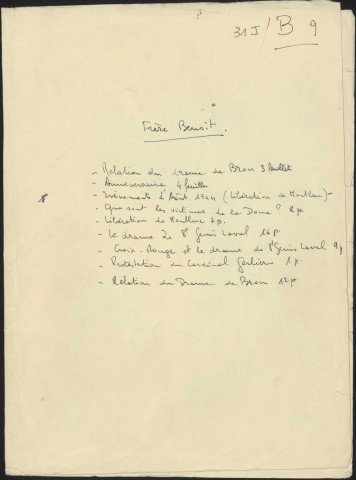 31J/B 9
Frère Benoit.
- Relation du drame de Bron 3 feuillets
- Anniversaire 4 feuilles
- Evénements d'Août 1944 (Libération de Montluc) -
- Que sont les victimes de la Doua ? 2 p.
- Libération de Montluc 2 p.
- Le drame de St Genis Laval 16 p.
- Croix-Rouge et le drame de St Genis Laval 9 p
- Protestation du Cardinal Gerlier 1 p.
- Relation du Drame de Bron 12 p